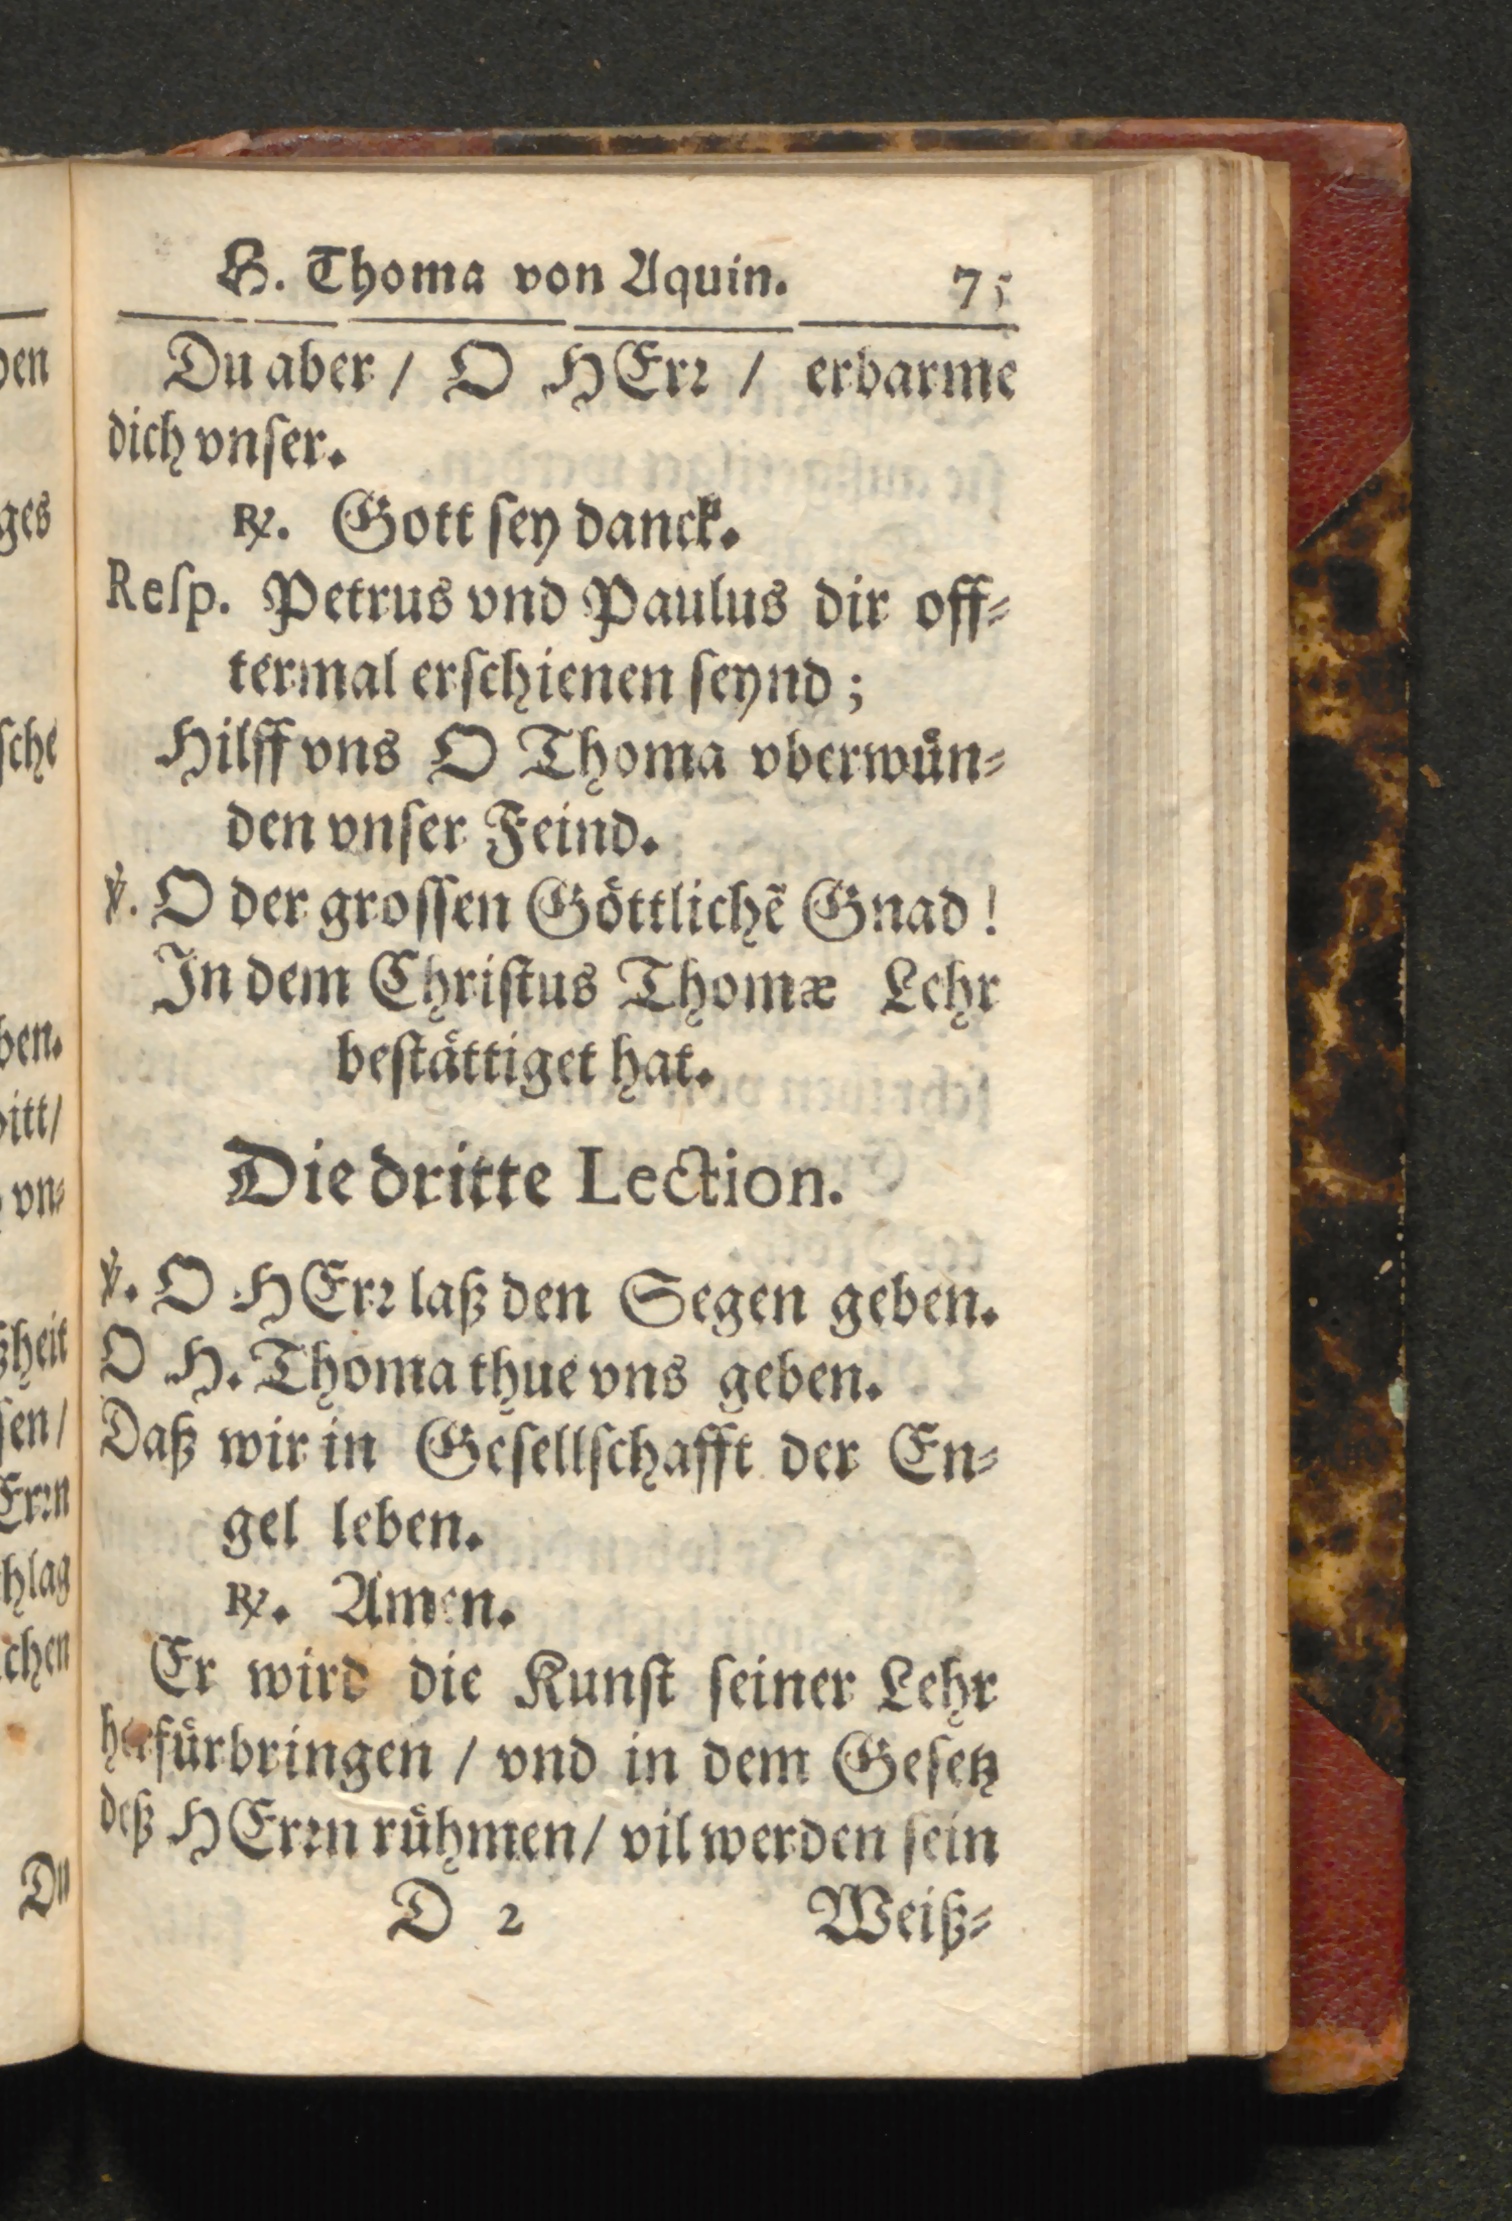 H. Thoma von Aquin. 75
Du aber / O HErꝛ / erbarme
dich vnſer.
℟. Gott ſey danck.
Reſp. Petrus vnd Paulus dir off⸗
termal erſchienen ſeynd ;
Hilff vns O Thoma vberwuͤn⸗
den vnſer Feind.
℣. O der groſſen Goͤttlichẽ Gnad !
In dem Chriſtus Thomæ Lehr
beſtaͤttiget hat.
Die dritte Lection.
℣. O HErꝛ laß den Segen geben.
O H. Thoma thue vns geben.
Daß wir in Geſellſchafft der En⸗
gel leben.
℟. Amen.
Er wird die Kunſt ſeiner Lehr
herfuͤrbringen / vnd in dem Geſetz
deß HErꝛn ruͤhmen / vil werden ſein
D 2 Weiß⸗